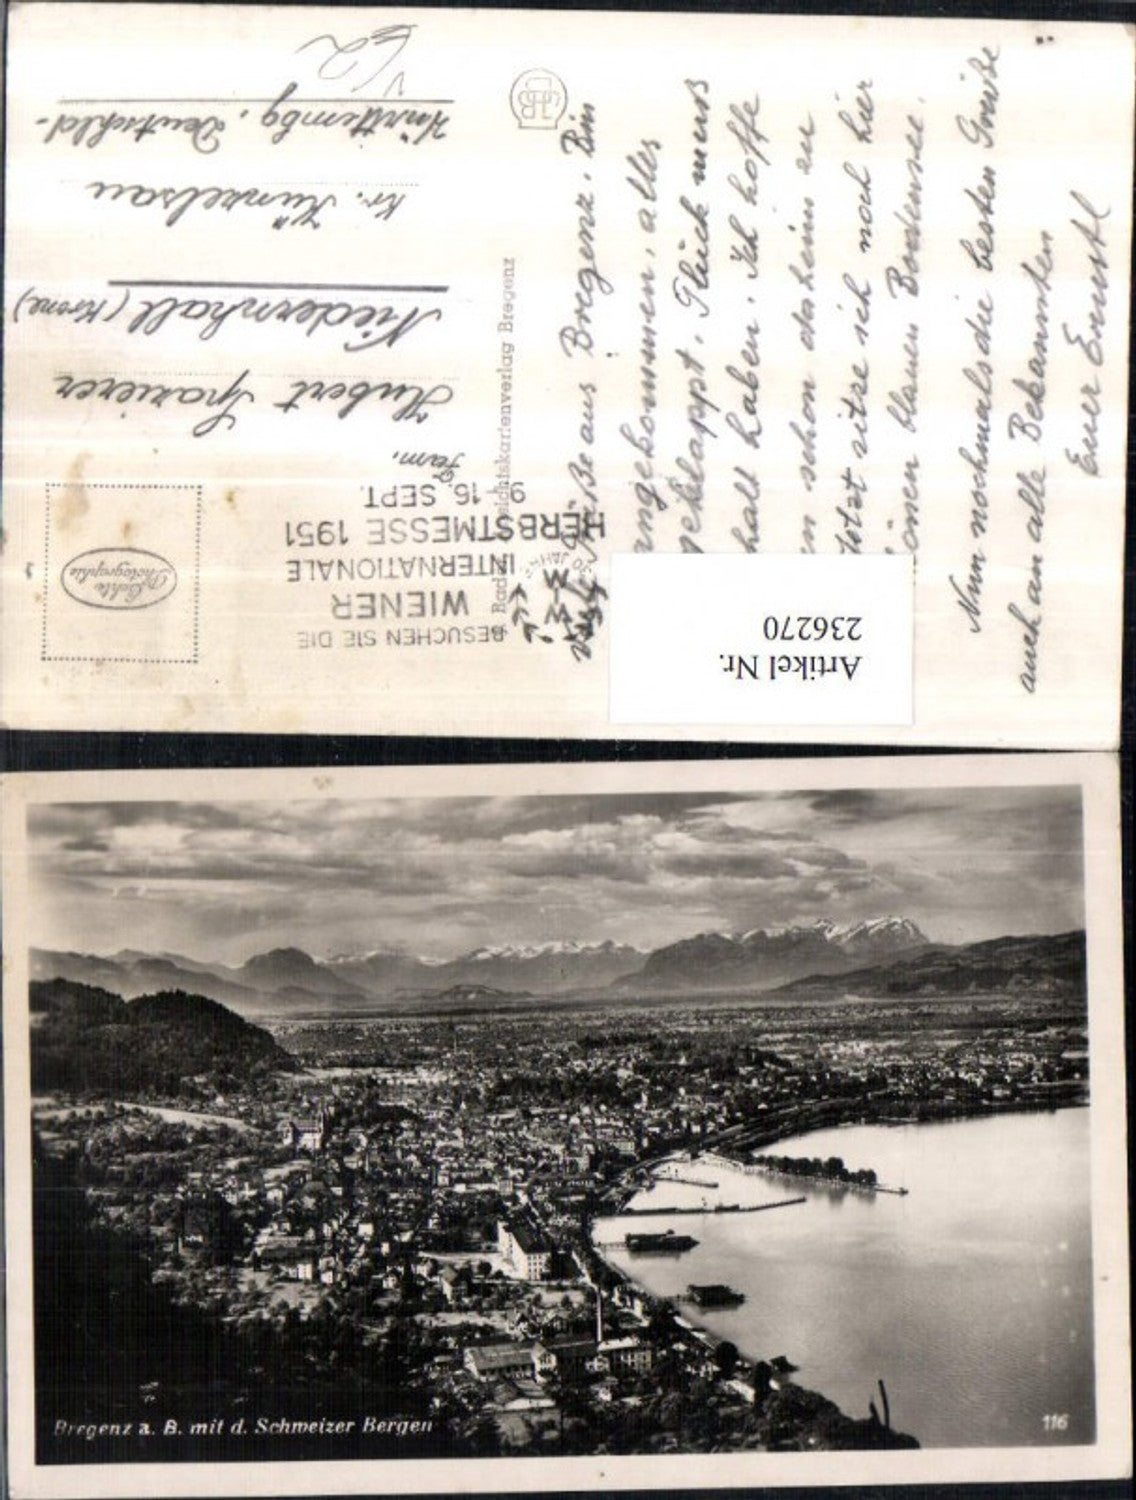 BESUCHEN SIE DIE
WIENER
INTERNATIONALE
HERBSTMESSE 1951
9.-16. SEPT.
Echte
Photographie
Fam.
Hubert Spazierer
Niedernhall (Krone)
Kr. Künzelsau
Württembg. Deutschld.
Ansichtskartenverlag Bregenz
Grüße aus Bregenz. Bin
angekommen, alles
geklappt. Glück muss
halt haben. Ich hoffe
schon daheim zu
sitze ich noch hier
blauen Bodensee.
Nun nochmals die besten Grüße
auch an alle Bekannten
Euer Ernstl
Artikel Nr.
236270
Bregenz a. B. mit d. Schweizer Bergen
116